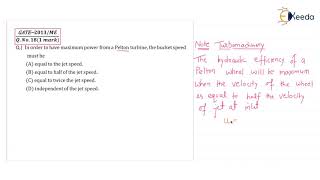 GATE-2013/ME
Q.No.18(1 mark)
Q.] In order to have maximum power from a Pelton turbine, the bucket speed
must be
(A) equal to the jet speed.
(B) equal to half of the jet speed.
(C) equal to twice the jet speed.
(D) independent of the jet speed.
Ekeeda
Note Turbomachinery
The hydraulic efficiency of a
Pelton wheel will be maximum
when the velocity of the wheel
is equal to half the velocity
of jet at inlet